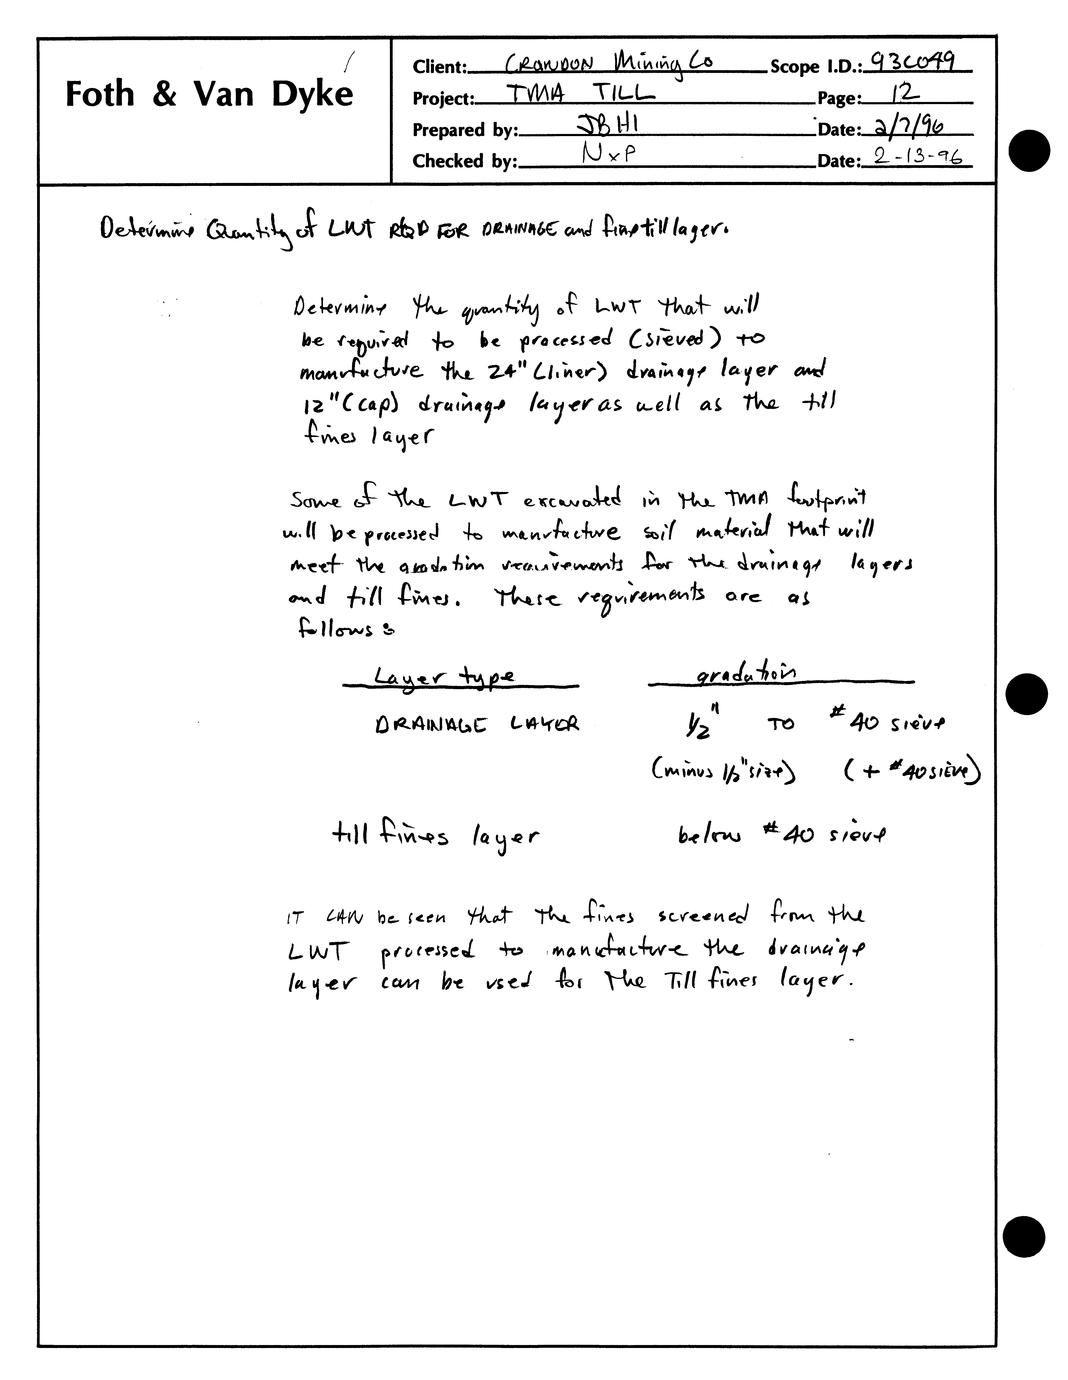 Foth & Van Dyke
Client: CRANDON Mining Co Scope I.D.: 93C049
Project: TMA TILL Page: 12
Prepared by: JBH1 Date: 2/7/96
Checked by: NxP Date: 2-13-96
Determine Quantity of LWT RQD FOR DRAINAGE and fine till layer.
Determine the quantity of LWT that will
be required to be processed (sieved) to
manufacture the 24" (liner) drainage layer and
12" (cap) drainage layer as well as the till
fines layer
Some of the LWT excavated in the TMA footprint
will be processed to manufacture soil material that will
meet the gradation requirements for the drainage layers
and till fines. These requirements are as
follows:
Layer type gradation
DRAINAGE LAYER 1/2" TO #40 sieve
(minus 1/2" size) (+ #40 SIEVE)
till fines layer below #40 sieve
IT CAN be seen that the fines screened from the
LWT processed to manufacture the drainage
layer can be used for the Till fines layer.